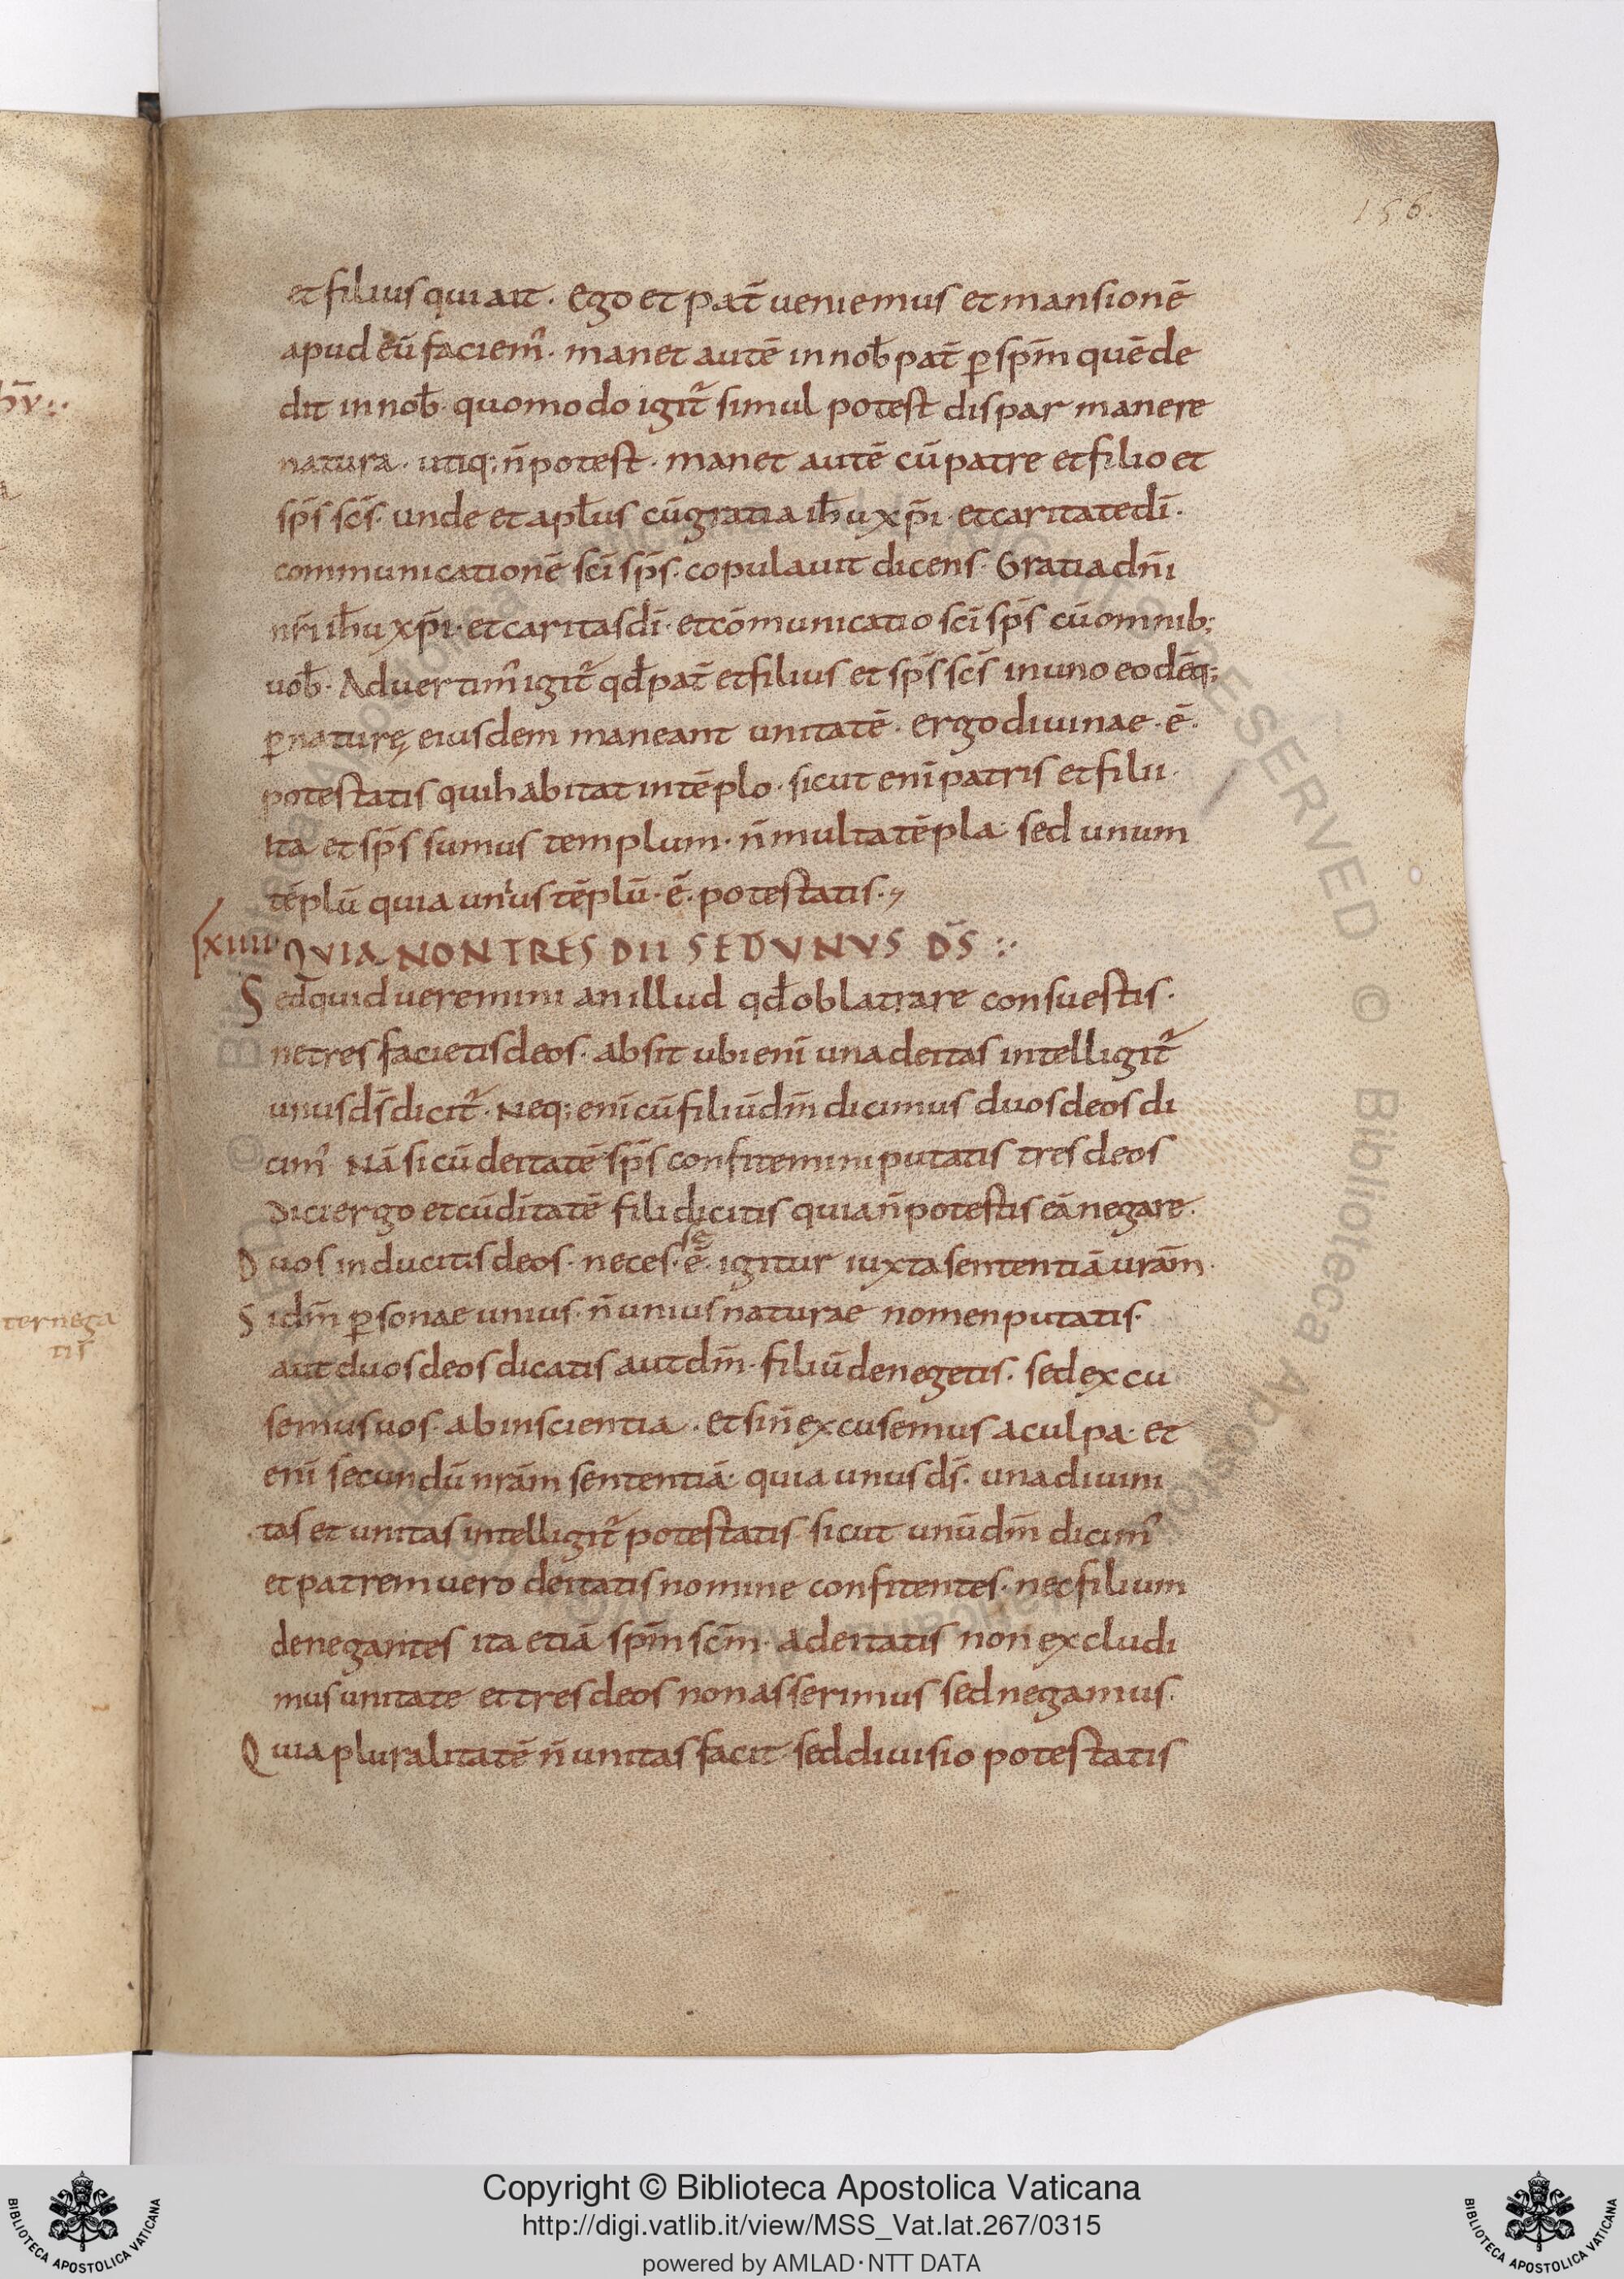 156.
et filius qui ait. Ego et pat̄ ueniemus et mansionē
apud eū faciem᷒. manet autē in nob̄ pat̄ ꝑ sp̄m quē de
dit in nob̄. quomodo igit᷒ simul potest dispar manere
natura. utiq; n̄ potest. manet autē cū patre et filio et
sp̄s sc̄s. unde et apl̄us cū gratia ih̄u xp̄i. et caritate dī.
communicationē sc̄i sp̄s. copulauit dicens. Gratia dn̄i
nr̄i ih̄u xp̄i. et caritas dī. et cōmunicatio sc̄i sp̄s cū omnib;
uob̄. Aduertim᷒ igit᷒ qd̄ pat̄ et filius et sp̄s sc̄s in uno eodēq;
ꝑ naturę eiusdem maneant unitatē. ergo diuinae .ē.
potestatis qui habitat in tēplo. sicut enī patris et filii.
Ita et sp̄s sumus templum. n̄ multa tēpla sed unum
tēplū quia unius tēplū .ē. potestatis.
xiiii QVIA NON TRES DII SED VNVS DS̄ :·
Sed quid ueremini an illud qd̄ oblatrare consuestis.
ne tres facietis deos. absit ubi enī una deitas intelligit᷒
unus ds̄ dicit᷒. Neq; enī cū filiū dm̄ dicimus duos deos di
cim᷒ Nā si cū deitatē sp̄s confitemini putatis tres deos
Dici ergo et cū ditatē fili dicitis quia n̄ potestis eā negare.
Duos inducitis deos. neces.sę ē. igitur iuxta sententiā urām.
Si dm̄ ꝑsonae unius. n̄ unius naturae nomen putatis.
aut duos deos dicatis aut dm̄. filiū denegetis. sed excu
semus uos. ab inscientia. et si n̄ excusemus a culpa. et
enī secundū nrām sententiā. quia unus ds̄. una diuini
tas et unitas intelligit᷒ potestatis. sicut unū dm̄ dicim᷒
et patrem uero deitatis nomine confitentes. nec filium
denegantes ita etiā sp̄m sc̄m. a deitatis non excludi
mus unitate et tres deos non asserimus sed negamus.
Quia pluralitatē n̄ unitas facit. sed diuisio potestatis
ternega
tis
Copyright © Biblioteca Apostolica Vaticana
http://digi.vatlib.it/view/MSS_Vat.lat.267/0315
powered by AMLAD·NTT DATA
BIBLIOTECA APOSTOLICA VATICANA
BIBLIOTECA APOSTOLICA VATICANA